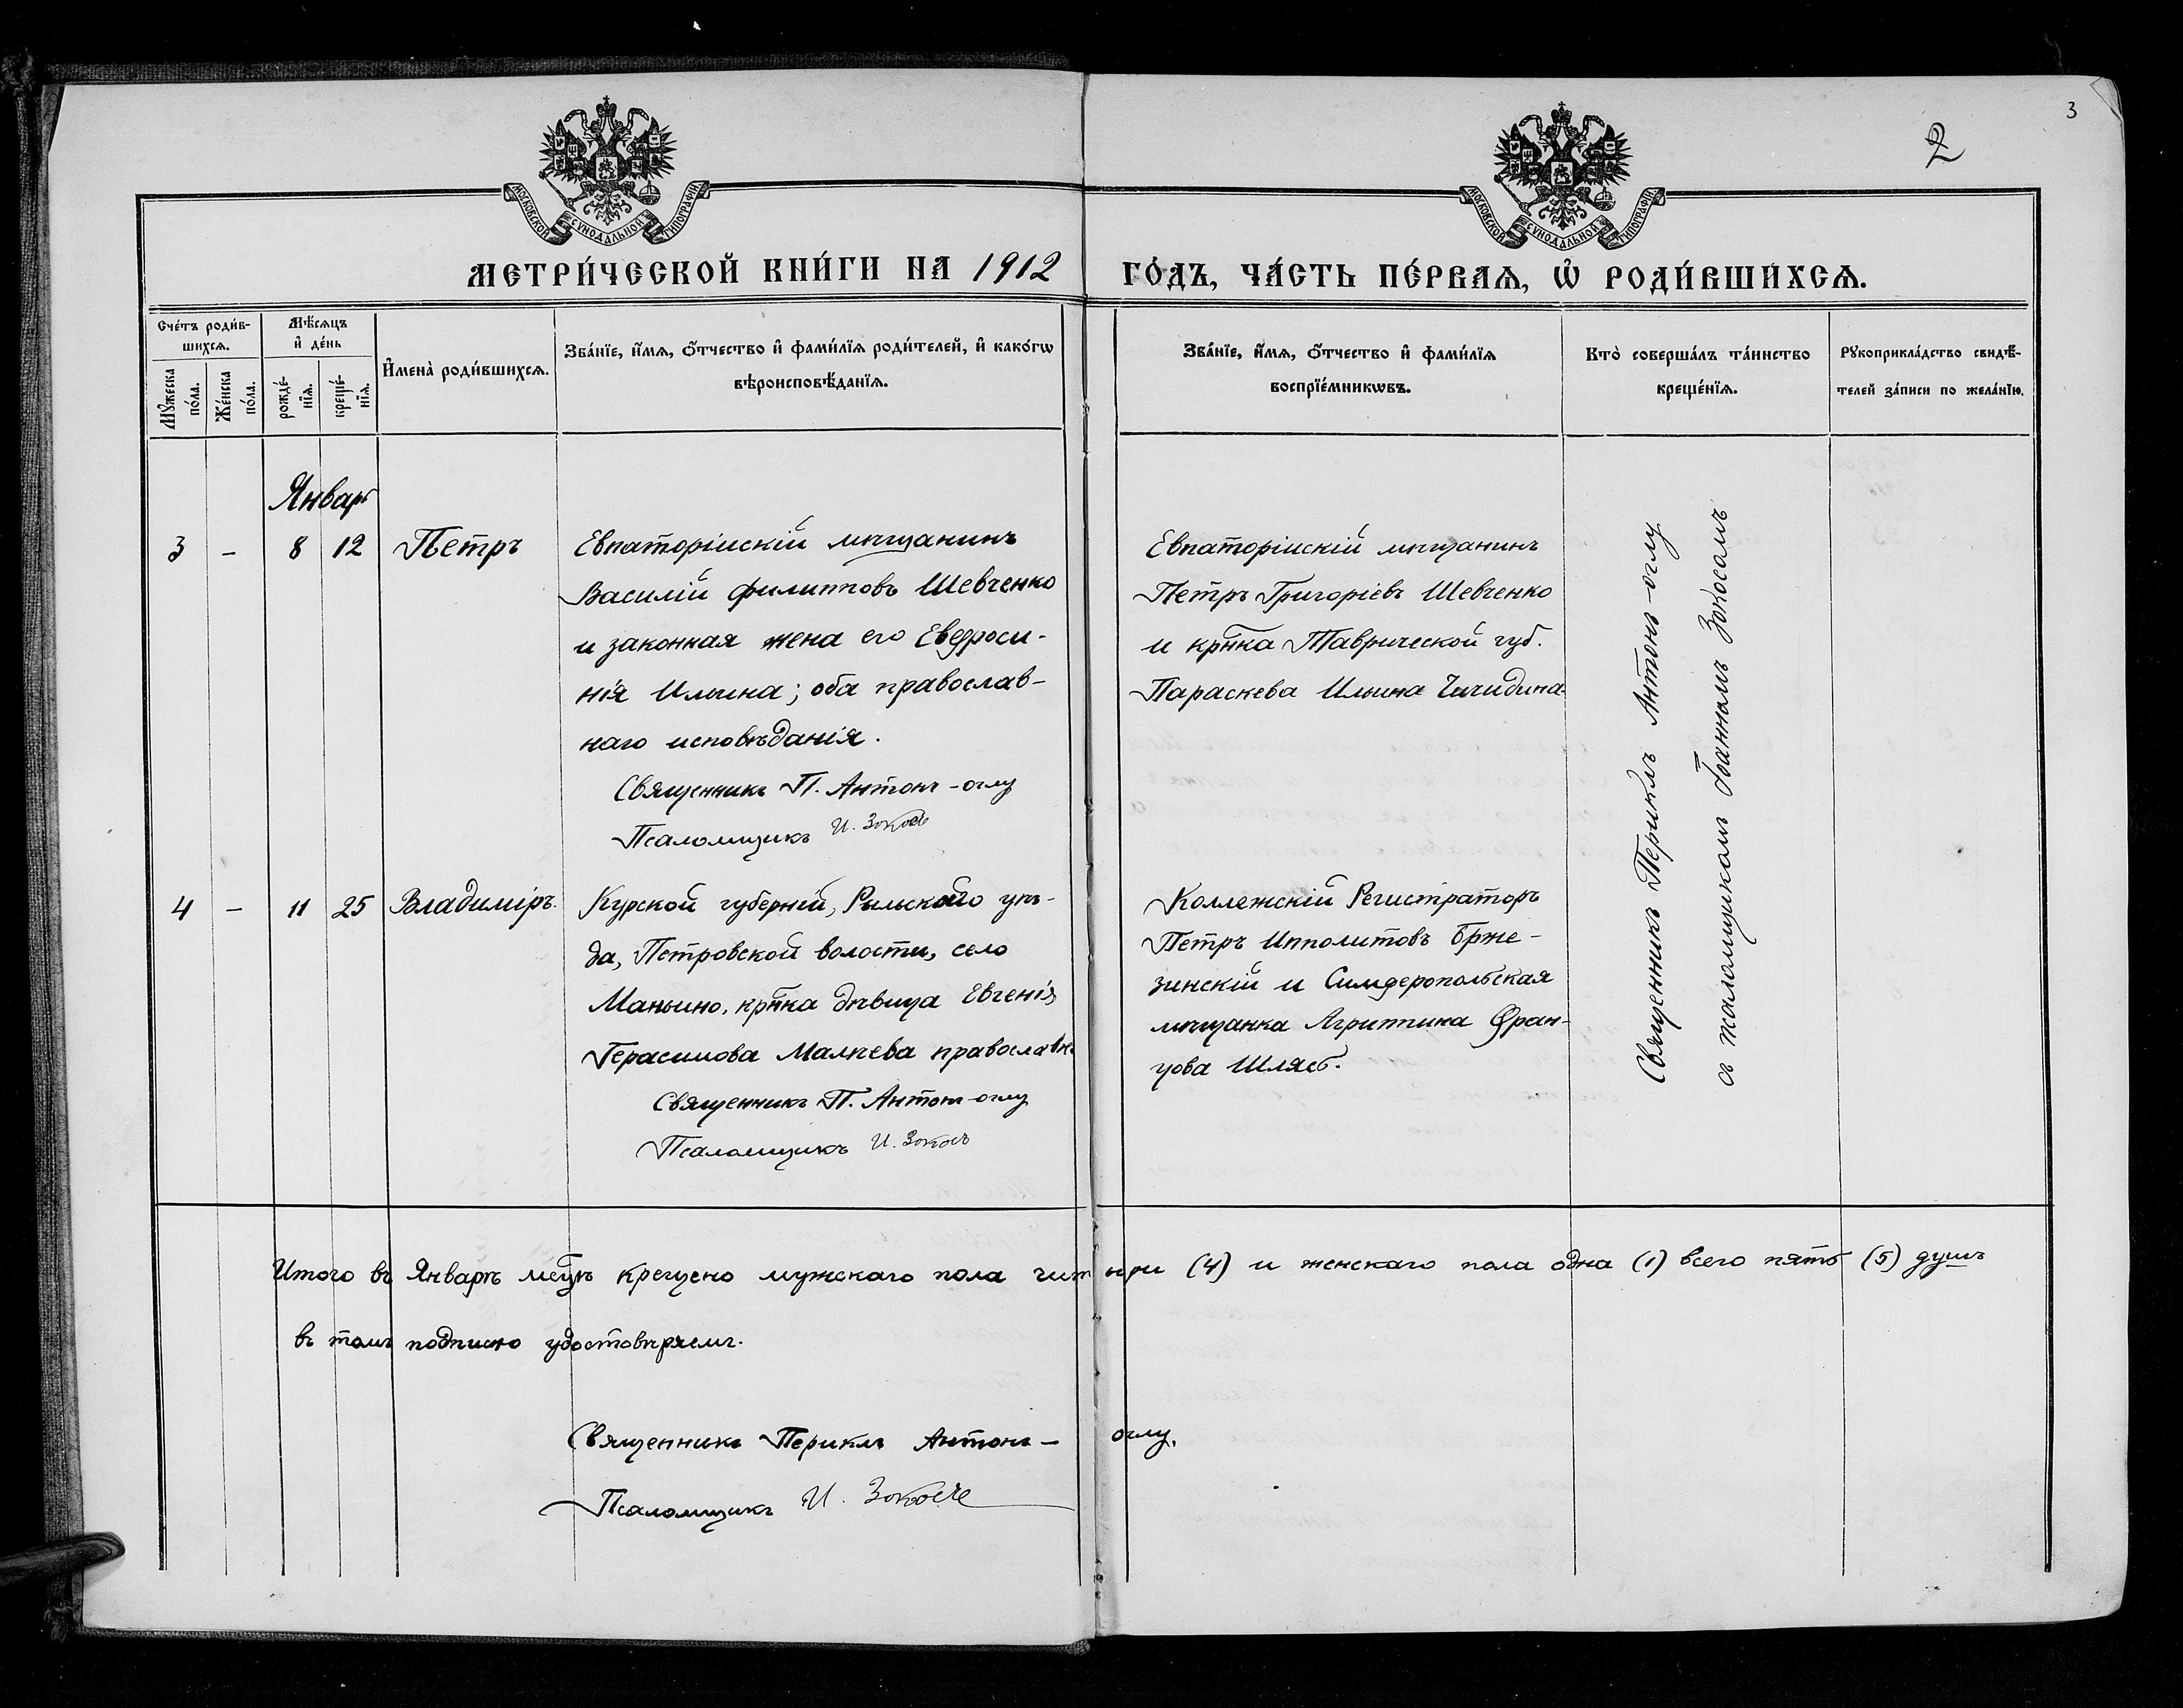 3
2
МОСКОВСКОЙ СѴНОДАЛЬНОЙ ТИПОГРАФІИ.
МОСКОВСКОЙ СѴНОДАЛЬНОЙ ТИПОГРАФІИ.
МЕТРИ́ЧЕСКОЙ КНИ́ГИ НА 1912 ГО́ДЪ, ЧА́СТЬ ПЕ́РВАѦ, Ѽ РОДИ́ВШИХСѦ.
Сче́тъ роди́в-
шихсѧ.
Мꙋ́жеска
по́ла.
Же́нска
по́ла.
Мѣ́сѧцъ
и҆ де́нь
рожде́-
нїѧ.
креще́-
нїѧ.
И҆мена̀ роди́вшихсѧ.
Зва́нїе, и҆́мѧ, ѻ҆́тчество и҆ фами́лїѧ роди́телей, и҆ како́гѡ
вѣроисповѣ́данїѧ.
Зва́нїе, и҆́мѧ, ѻ҆́тчество и҆ фами́лїѧ
воспрїе́мникѡвъ.
Кто̀ соверша́лъ та́инство
креще́нїѧ.
Рꙋкоприкла́дство свидѣ́-
телей за́писи по жела́нїю.
Январь
3 – 8 12 Петръ
Евпаторійскій мѣщанинъ
Василій Филипповъ Шевченко
и законная жена его Евфроси-
нія Ильина; оба православ-
наго исповѣданія.
Священникъ П. Антонъ-оглу
Псаломщикъ И. Зокосъ
Евпаторійскій мѣщанинъ
Петръ Григоріевъ Шевченко
и крн̃ка Таврической губ.
Параскева Ильина
4 – 11 25 Владиміръ.
Курской губерніи, Рыльскаго уѣз-
да, Петровской волости, село
Маньино, крн̃ка дѣвица Евгенія
Герасимова Малѣева православн.
Священникъ П. Антонъ-оглу
Псаломщикъ И. Зокосъ
Коллежскій Регистраторъ
Петръ Ипполитовъ Брже-
зинскій и Симферопольская
мѣщанка Агриппина Фран-
цова
Священникъ Периклъ Антонъ-оглу
съ псаломщикомъ Іоанномъ Зокосомъ
Итого въ Январѣ мѣсцѣ крещено мужскаго пола четыри (4) и женскаго пола одна (1) всего пять (5) душъ
въ томъ подписью удостовѣряемъ.
Священникъ Периклъ Антонъ-оглу.
Псаломщикъ И. Зокосъ